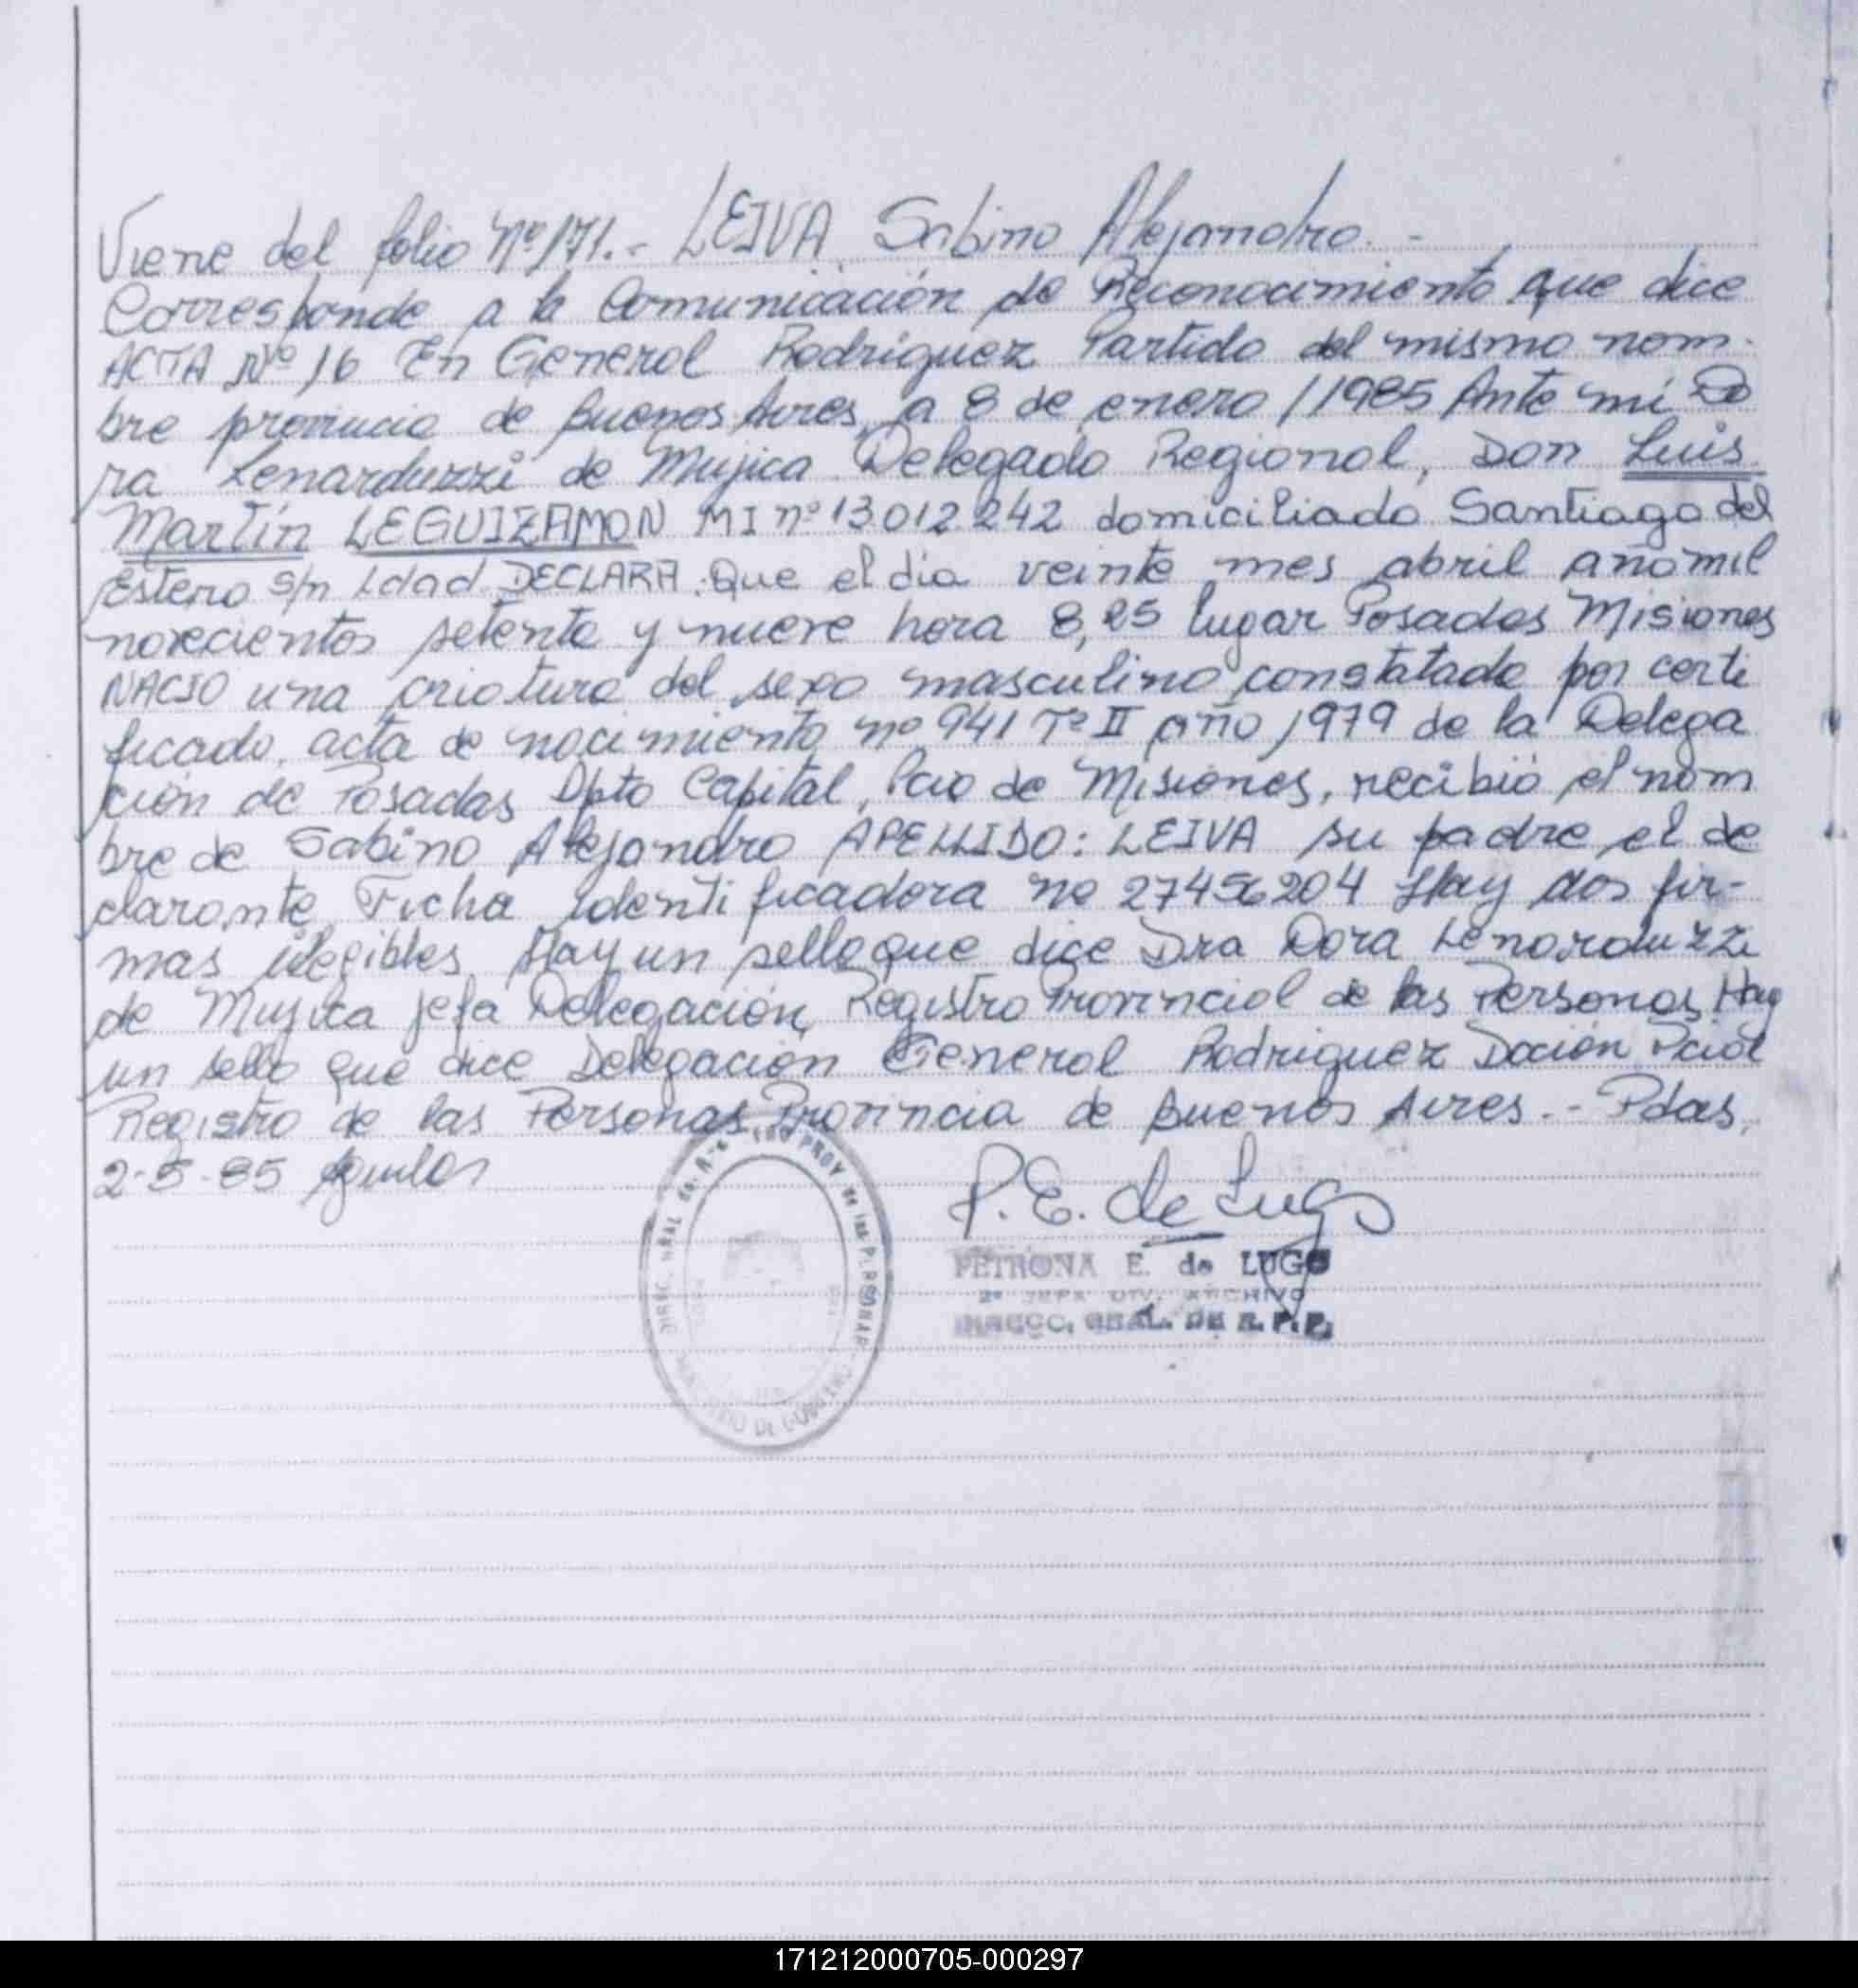 Viene del folio Nº 171.- LEIVA Sabino Alejandro. -
Corresponde a la Comunicación de Reconocimiento que dice
ACTA Nº 16 En General Rodriguez Partido del mismo nom-
bre provincia de Buenos Aires, a 8 de enero /1985 Ante mí Do
ra Lenarduzzi de Mujica Delegado Regional, Don Luis
Martín LEGUIZAMON MI nº 13012242 domiciliado Santiago del
Estero s/n Ldad DECLARA. Que el día veinte mes abril año mil
novecientos setenta y nueve hora 8,25 lugar Posadas Misiones
NACIO una criatura del sexo masculino constatado por certi
ficado, acta de nacimiento nº 941 Tº II año 1979 de la Delega
ción de Posadas Dpto Capital, Pcia de Misiones, recibió el nom
bre de Sabino Alejandro APELLIDO: LEIVA su padre el de
clarante Ficha Identificadora nº 27456204 Hay dos fir-
mas ilegibles Hay un sello que dice Dra Dora Lenarduzzi
de Mujica jefa Delegación, Registro Provincial de las Personas, Hay
un sello que dice Delegación General Rodriguez Dcción Pcial
Registro de las Personas Provincia de Buenos Aires. - Pdas,
2-5-85
P. E. de Lugo
PETRONA E. de LUGO
2ª JEFA DIV. ARCHIVO
DIRECC. GRAL. DE R. P. P.
171212000705-000297